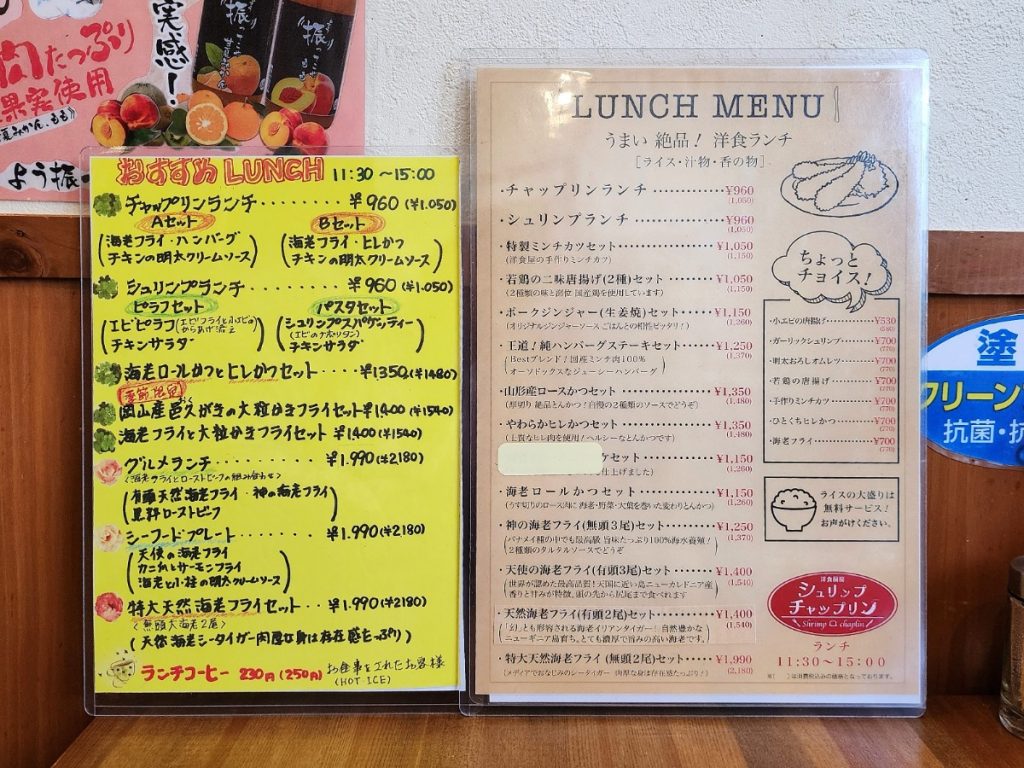 実感!
肉たっぷり
果実使用
夏みかん、もも
よう振
振
おすすめ LUNCH 11:30 ~15:00
チャップリンランチ ・・・・・・・・ ¥960 (¥1.050)
Aセット
海老フライ・ハンバーグ
チキンの明太クリームソース
Bセット
海老フライ・ヒレかつ
チキンの明太クリームソース
シュリンプランチ ・・・・・・・・ ¥960 (¥1.050)
ピラフセット
エビピラフ
チキンサラダ
パスタセット
シュリンプスパゲッティー
チキンサラダ
海老ロールかつとヒレかつセット ・・・ ¥1350 (¥1480)
季節限定
岡山産邑久がきの大粒かきフライセット ¥1,400 (¥1540)
海老フライと大粒かきフライセット ¥1,400 (¥1540)
グルメランチ ・・・・・・・・ ¥1.990 (¥2180)
<海老フライとローストビーフの組み合わせ>
有頭天然海老フライ・神の海老フライ
黒料ローストビーフ
シーフードプレート ・・・・・・ ¥1.990 (¥2180)
天使の海老フライ
カニ爪とサーモンフライ
海老と小柱の明太クリームソース
特大天然海老フライセット ・・ ¥1.990 (¥2180)
<無頭大海老2尾>
(天然海老シータイガー肉厚な身は存在感たっぷり)
ランチコーヒー 230円 (250円) お食事をされたお客様
(HOT・ICE)
LUNCH MENU
うまい 絶品! 洋食ランチ
[ライス・汁物・香の物]
・チャップリンランチ ・・・・・・・・・ ¥960
(1,050)
・シュリンプランチ ・・・・・・・・・ ¥960
(1,050)
・特製ミンチカツセット ・・・・・・・・ ¥1,050
(洋食屋の手作りミンチカツ) (1,150)
・若鶏の二味唐揚げ(2種)セット ・・・・・ ¥1,050
(2種類の味と部位 国産鶏を使用しています) (1,150)
・ポークジンジャー(生姜焼)セット ・・・・ ¥1,150
(オリジナルジンジャーソース ごはんとの相性ピッタリ!) (1,260)
・王道!純ハンバーグステーキセット ・・・・ ¥1,250
(1,370)
Bestブレンド!国産ミンチ肉100%
オーソドックスなジューシーハンバーグ
・山形産ロースかつセット ・・・・・・・ ¥1,350
(厚切り 絶品とんかつ!自慢の2種類のソースでどうぞ) (1,480)
・やわらかヒレかつセット ・・・・・・・ ¥1,350
(上質なヒレ肉を使用!ヘルシーなとんかつです) (1,480)
ケセット ・・・・ ¥1,150
仕上げました) (1,260)
・海老ロールかつセット ・・・・・・・・ ¥1,150
(うす切りのロース肉に 海老・野菜・大葉を巻いた変わりとんかつ) (1,260)
・神の海老フライ(無頭3尾)セット ・・・・ ¥1,250
(1,370)
バナメイ種の中でも最高級 旨味たっぷり100%海水養殖!
2種類のタルタルソースでどうぞ
・天使の海老フライ(有頭3尾)セット ・・・ ¥1,400
(1,540)
世界が認めた最高品質!天国に近い島ニューカレドニア産
香りと甘みが特徴、頭の先から尻尾まで食べれます
・天然海老フライ(有頭2尾)セット ・・・・ ¥1,400
(1,540)
「幻」とも形容される海老イリアンタイガー!自然豊かな
ニューギニア島育ち。とても濃厚で旨みの高い海老です。
・特大天然海老フライ(無頭2尾)セット ・・ ¥1,990
(メディアでおなじみのシータイガー 肉厚な身は存在感たっぷり!) (2,180)
ちょっと
チョイス!
・小エビの唐揚げ ・・・・・・ ¥530
(580)
・ガーリックシュリンプ ・・・ ¥700
(770)
・明太おろしオムレツ ・・・・ ¥700
(770)
・若鶏の唐揚げ ・・・・・・ ¥700
(770)
・手作りミンチカツ ・・・・・ ¥700
(770)
・ひとくちヒレかつ ・・・・・ ¥700
(770)
・海老フライ ・・・・・・・ ¥700
(770)
ライスの大盛りは
無料サービス!
お声がけください。
洋食厨房
シュリンプ
チャップリン
Shrimp chaplin
ランチ
11:30~15:00
※( )は消費税込みの価格となっております。
塗
フリーン
抗菌・抗